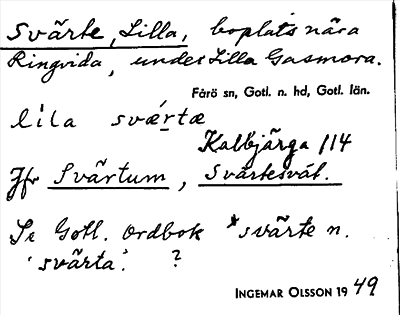 Svärte, Lilla, boplats nära
Ringvida, under Lilla Gasmora.
Fårö sn, Gotl. n. hd, Gotl. län.
lila sværtæ
Kalbjärga 114
Jfr Svärtum, Svärtesvät.
Se Gotl. Ordbok *svärte n.
'svärta'. ?
INGEMAR OLSSON 19 49